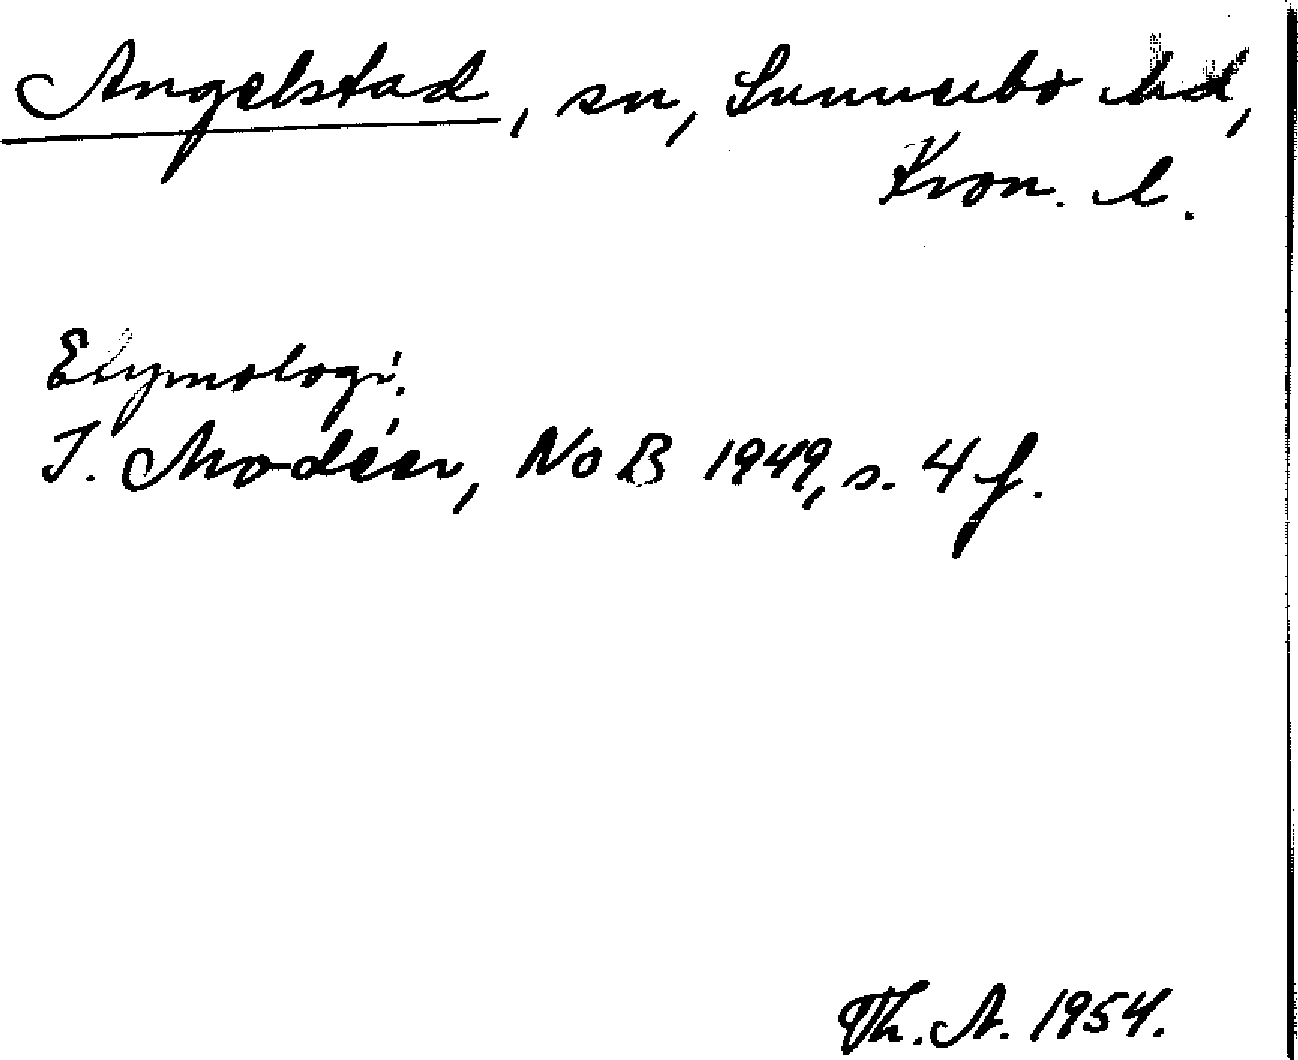 Angelstad, sn, Sunnerbo hd,
Kron. l.
Etymologi.
I. Modéer, NoB 1949, s. 4 f.
Th. A. 1954.